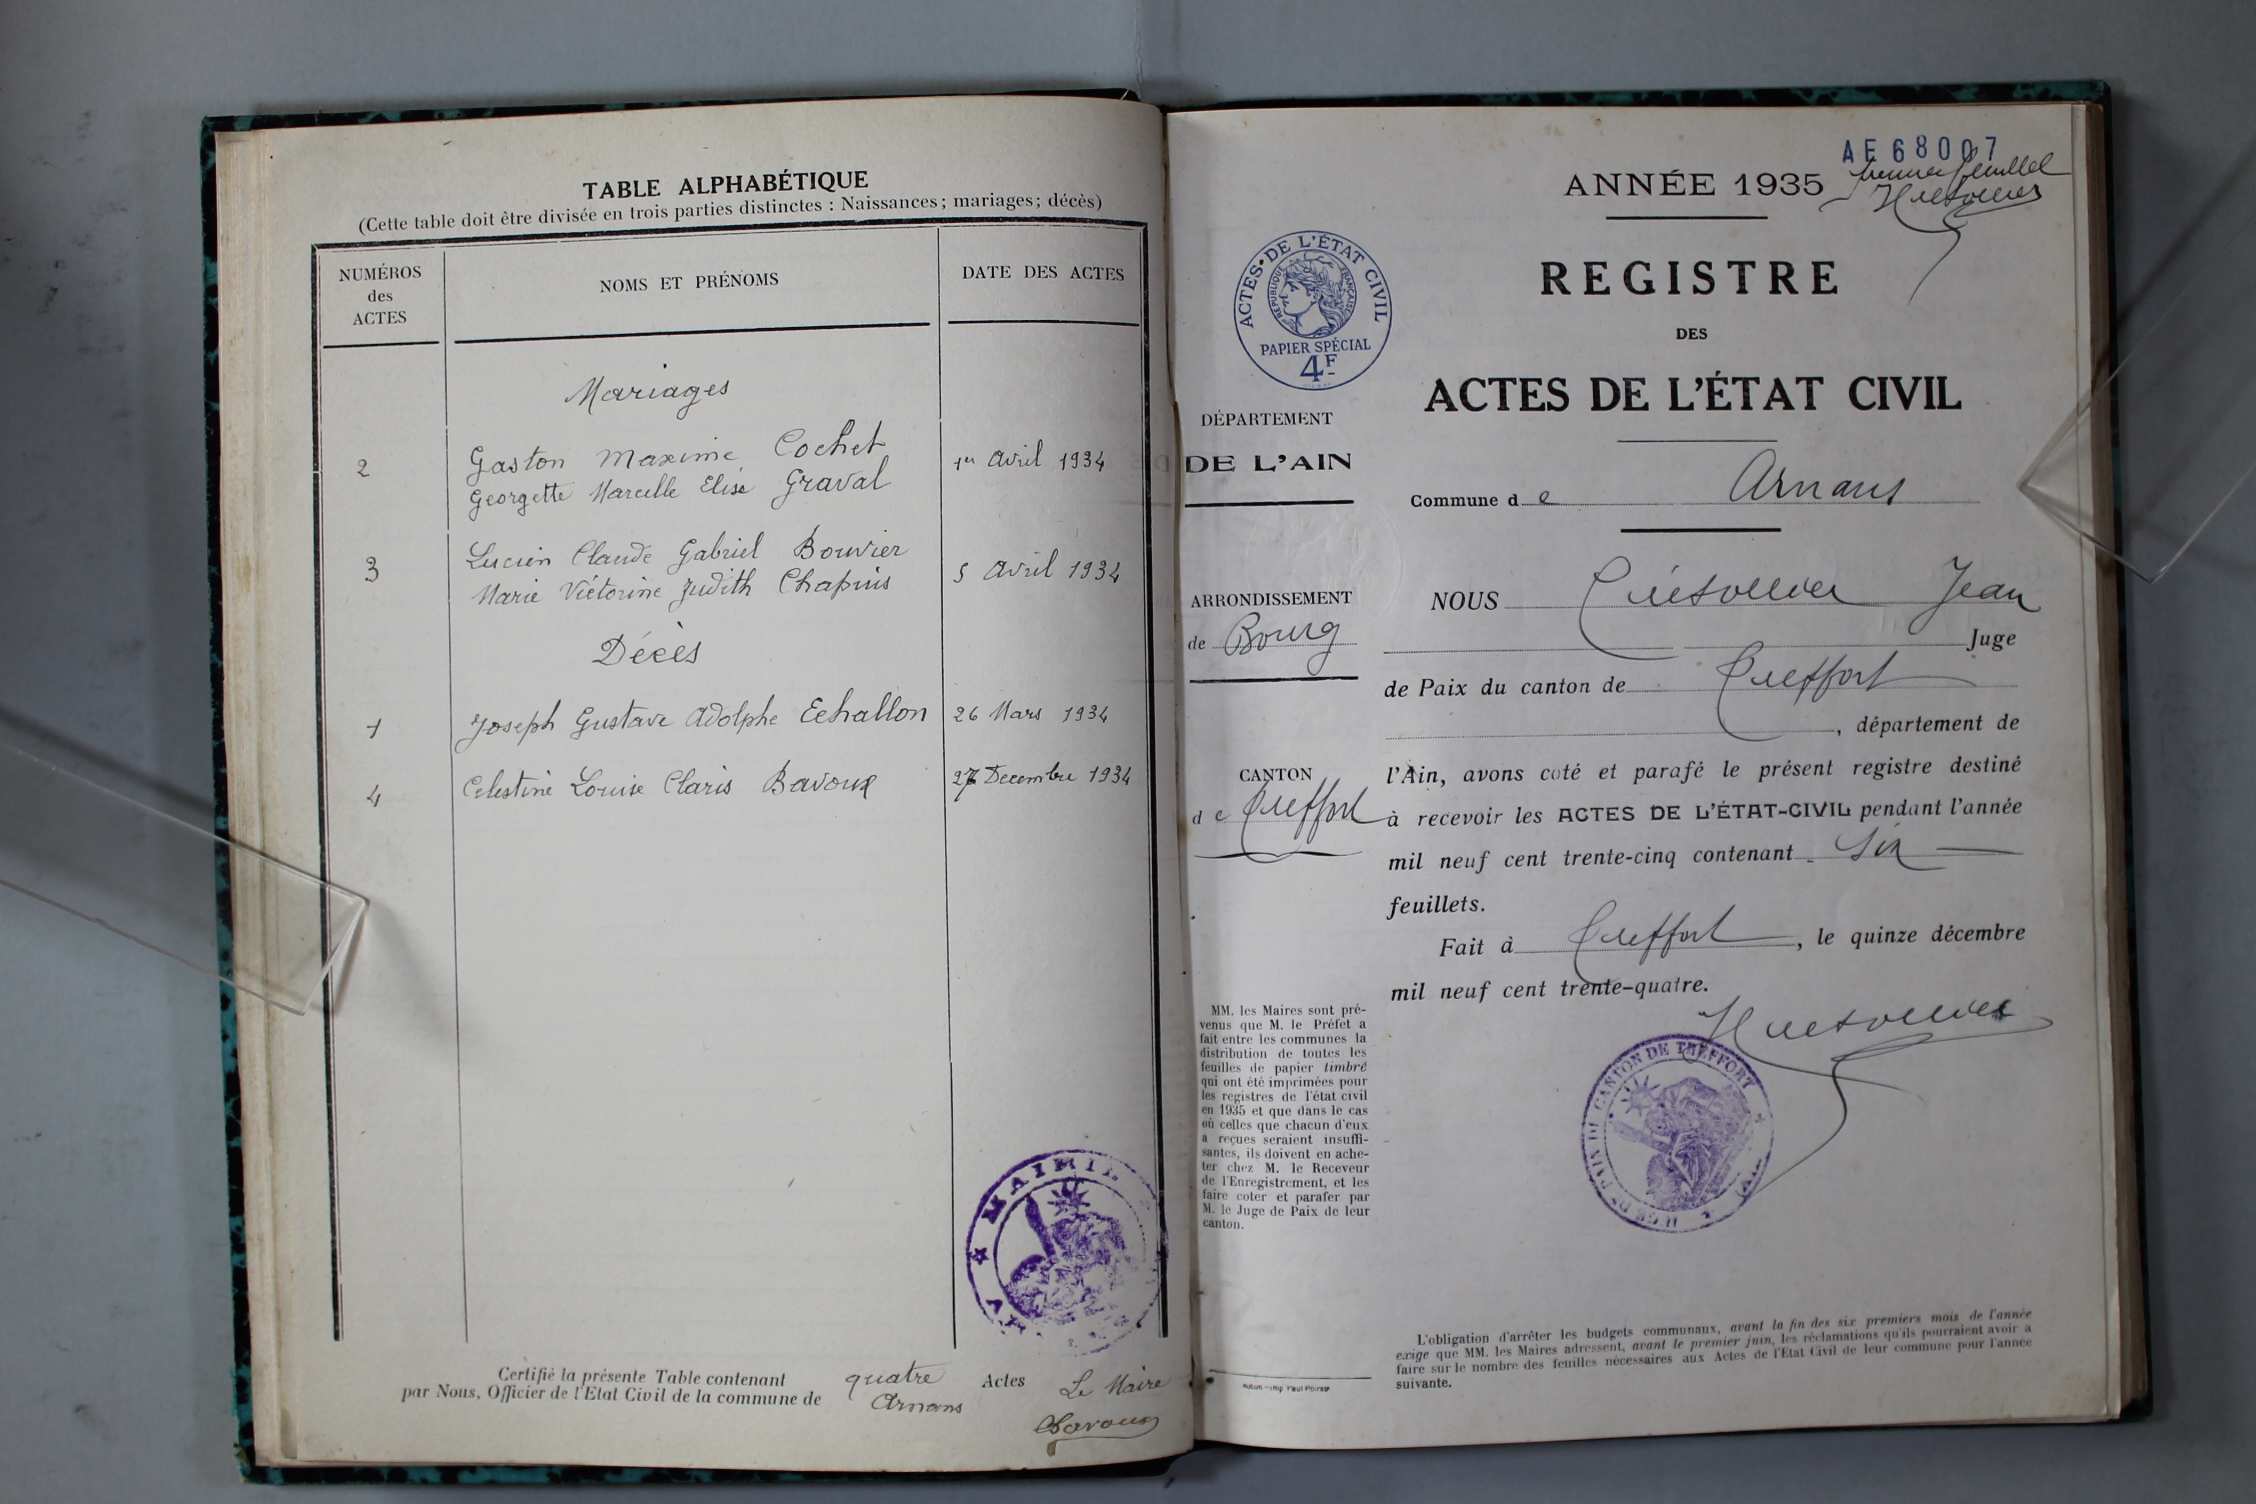 TABLE ALPHABÉTIQUE
(Cette table doit être divisée en trois parties distinctes : Naissances ; mariages ; décès)
NUMÉROS
des
ACTES
NOMS ET PRÉNOMS
DATE DES ACTES
Mariages
2 Gaston Maxime Cochet 1er Avril 1934
Georgette Marcelle Elise Graval
3 Lucien Claude Gabriel Bouvier 5 Avril 1934
Marie Victorine Judith Chapuis
Décès
1 Joseph Gustave Adolphe Echallon 26 Mars 1934
4 Celestine Louise Claris Bavoux 27 Decembre 1934
MAIRIE
Certifié la présente Table contenant quatre Actes
par Nous, Officier de l'Etat Civil de la commune de Arnans
Le Maire
Bavoux
AE 68007
ANNÉE 1935
premier feuillet
REGISTRE
DES
ACTES DE L'ÉTAT CIVIL
ACTES • DE L'ÉTAT CIVIL
RÉPUBLIQUE FRANÇAISE
PAPIER SPÉCIAL
4F
DÉPARTEMENT
DE L'AIN
ARRONDISSEMENT
de Bourg
CANTON
de Treffort
MM. les Maires sont pré-
venus que M. le Préfet a
fait entre les communes la
distribution de toutes les
feuilles de papier timbré
qui ont été imprimées pour
les registres de l'état civil
en 1935 et que dans le cas
où celles que chacun d'eux
a reçues seraient insuffi-
santes, ils doivent en ache-
ter chez M. le Receveur
de l'Enregistrement, et les
faire coter et parafer par
M. le Juge de Paix de leur
canton.
Commune de Arnans
NOUS Jean
Juge
de Paix du canton de Treffort
, département de
l'Ain, avons coté et parafé le présent registre destiné
à recevoir les ACTES DE L'ÉTAT-CIVIL pendant l'année
mil neuf cent trente-cinq contenant Six
feuillets.
Fait à Treffort, le quinze décembre
mil neuf cent trente-quatre.
CANTON DE TREFFORT
L'obligation d'arrêter les budgets communaux, avant la fin des six premiers mois de l'année
exige que MM. les Maires adressent, avant le premier juin, les réclamations qu'ils pourraient avoir à
faire sur le nombre des feuilles nécessaires aux Actes de l'Etat Civil de leur commune pour l'année
suivante.